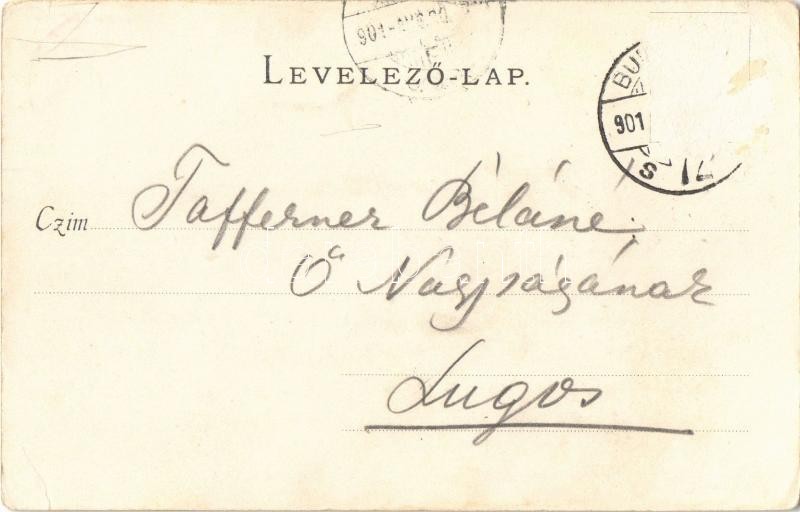 901
LEVELEZŐ-LAP.
BU
901
Czim Tafferner Béláné
Ő Nagyságának
Lugos